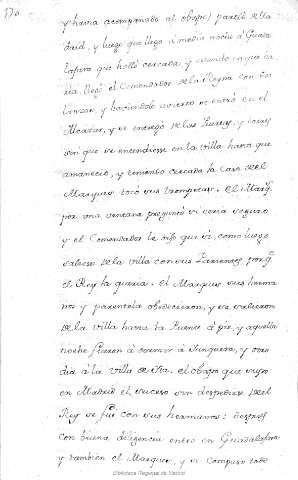 170
y havia acompañado al obispo) partió de Ma
drid, y luego que llegó à media noche à Guada
laxara que halló cercada, y
dia, llegó el Comendador de la Reyna con dos
lanzas, y haviendole se entró en el
Alcazar, y se entregó de las Puertas, y torres
sin que se entendiesse en la villa hasta que
amaneció, y teniendo cercada la Casa de el
Marques tocó sus trompetas. el Marq.s
por una ventana preguntó si seria seguro
y el Comendador le dijo que si, como luego
saliesse de la villa con sus Parientes porq.e
el Rey la queria. el Marques sus herma
nos y parentela obedecieron, y se salieron
de la villa hasta la Puente à pie, y aquella
noche fueron à dormir à Junquera, y otro
dia à la villa de Ita. el obispo que supo
en Madrid el suceso sin despedirse de el
Rey se fue con sus hermanos: despues
con buena diligencia entro en Guadalaxara
y tambien el Marques, y se compuso todo
Biblioteca Regional de Madrid